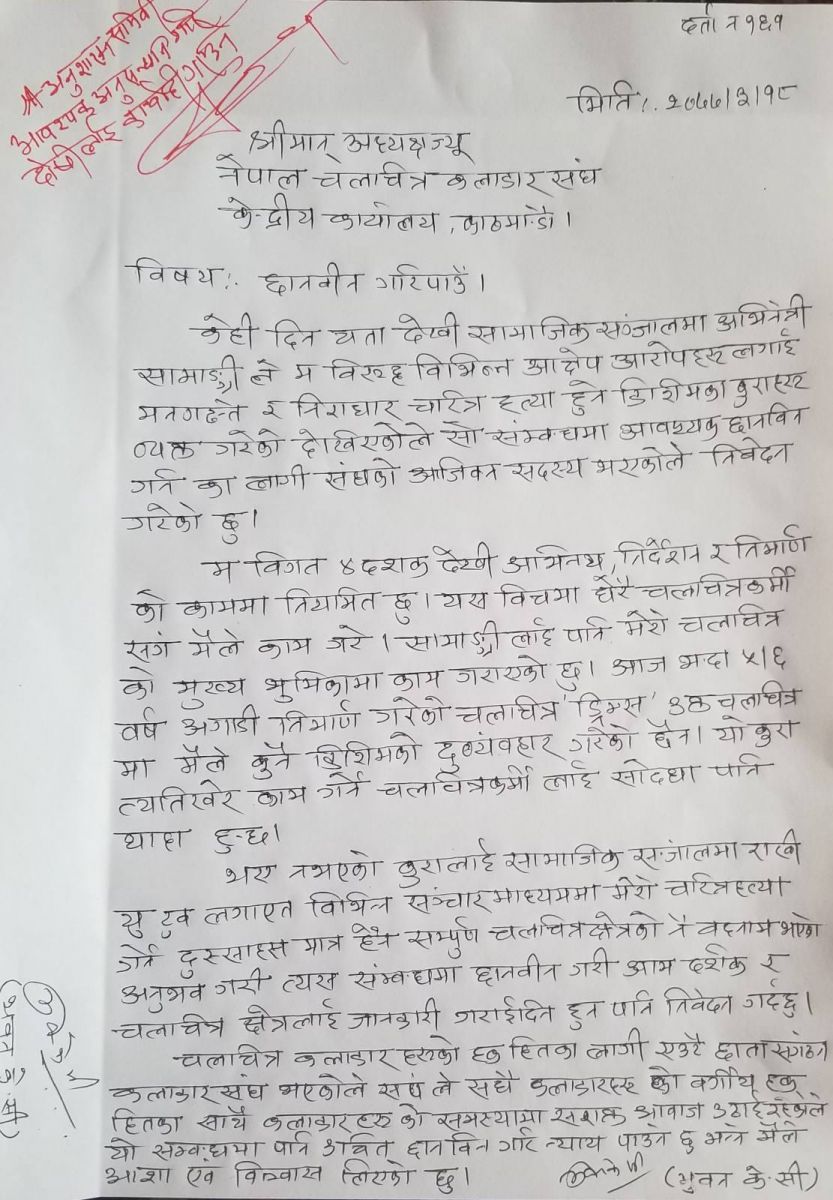 दर्ता न १६१
श्री अनुशासन समिति
आवश्यक अनुसन्धान गरी
दोषीलाई कार्वाही गर्नुहोस
मिति:. २०७७।३।१८
श्रीमान् अध्यक्षज्यू
नेपाल चलचित्र कलाकार संघ
केन्द्रीय कार्यालय, काठमाडौं।
विषय:. छानवीन गरिपाउँ।
केही दिन यता देखी सामाजिक सञ्जालमा अभिनेत्री
सामाङ्ग्री ले म विरुद्द विभिन्न आक्षेप आरोपहरु लगाई
मनगढन्ते र निराधार चारित्र हत्या हुने किसिमका कुराहरु
व्यक्त गरेको देखिएकोले सो संम्वन्धमा आवश्यक छानविन
गर्न का लागी संघको आजिवन सदस्य भएकोले निवेदन
गरेको छु।
म विगत ४ दशक देखी अभिनय, निर्देशन र निर्माण
को काममा नियमित छु। यस विचमा धेरै चलचित्रकर्मी
सगं मैले काम गरे। सामाङ्ग्री लाई पनि मेरो चलचित्र
को मुख्य भुमिकामा काम गराएको छु। आज भन्दा ५।६
वर्ष अगाडी निर्माण गरेको चलचित्र 'ड्रिम्स' उक्त चलचित्र
मा मैले कुनै किसिमको दुर्व्यवहार गरेको छैन। यो कुरा
त्यतिखेर काम गर्ने चलचित्रकर्मी लाई सोद्धा पनि
थाहा हुन्छ।
भए नभएको कुरालाई सामाजिक सञ्जालमा राखी
यु टुव लगाएत विभिन्न सञ्चार माध्यममा मेरो चरित्र हत्या
गर्ने दुस्साहस मात्र हैन सम्पुर्ण चलचित्र क्षेत्रको नै वदनाम भएको
अनुभव गरी त्यस संम्वन्धमा छानवीन गरी आम दर्शक र
चलचित्र क्षेत्रलाई जानकारी गराईदिन हुन पनि निवेदन गर्दछु।
चलचित्र कलाकार हरुको हक हितका लागी एउटै छाता संगठन
कलाकार संघ भएकोले संघ ले सधै कलाकारहरु को वर्गीय हक
हितका साथै कलाकारहरु को समस्यामा सशक्त आवाज उठाई रहेकोले
यो सम्वन्धमा पनि उचित छानविन गरि न्याय पाउने छु भन्ने मैले
आशा एवं विश्वास लिएको छु।
(भुवन के.सी)
(भुवन के.सी)